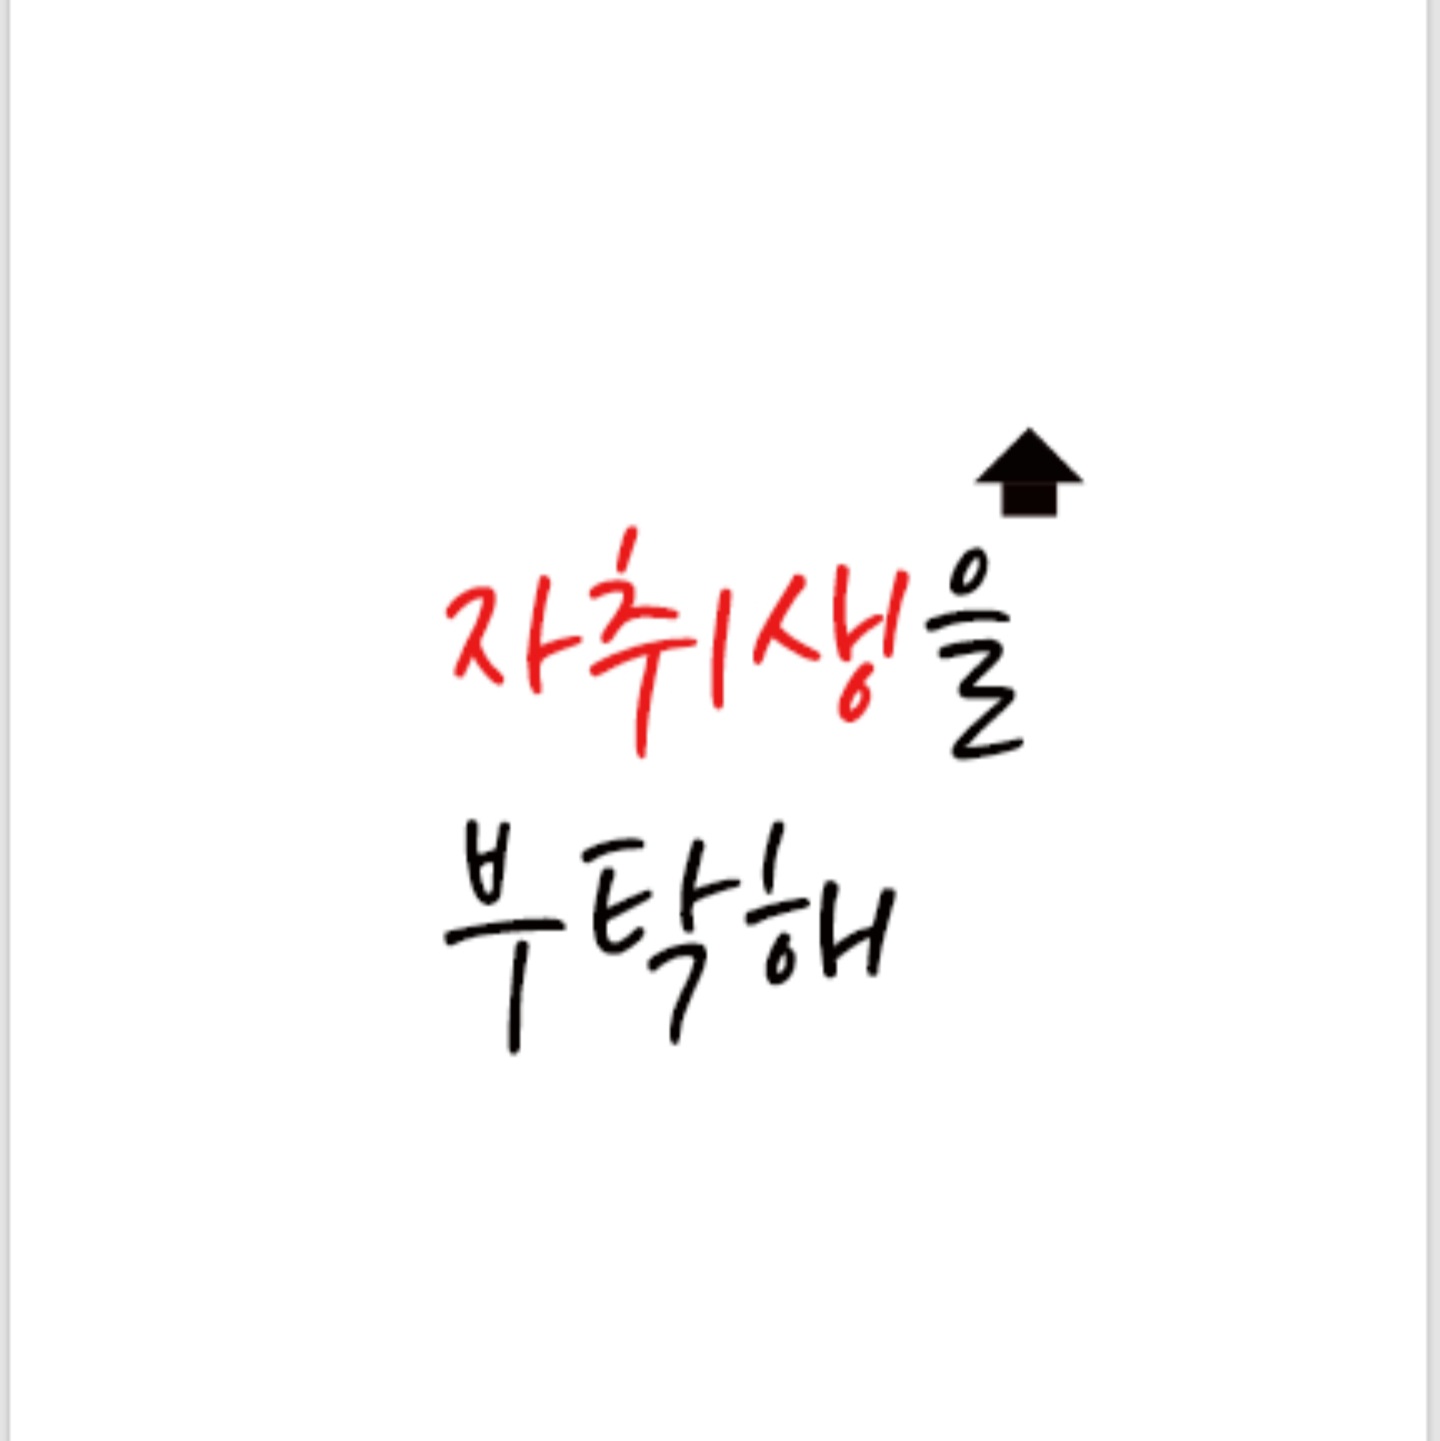 자취생을
부탁해